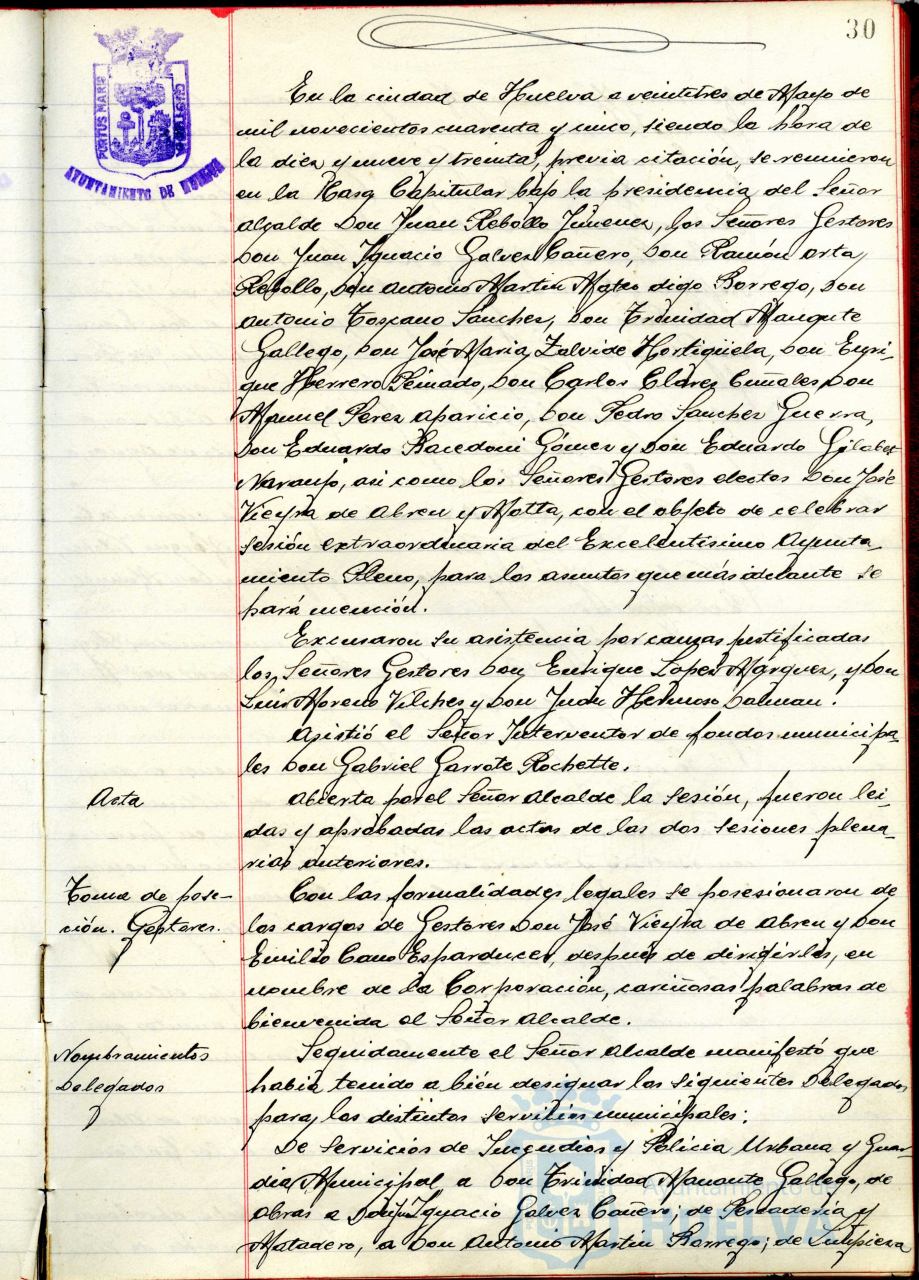 30
PORTUS MARIS
CUSTODIA
AYUNTAMIENTO DE HUELVA
En la ciudad de Huelva a veintitres de Mayo de
mil novecientos cuarenta y cinco, siendo la hora de
la diez y nueve y treinta, previa citación, se reunieron
en la Casa Capitular bajo la presidencia del Señor
Alcalde Don Juan Rebollo Jimenez, los Señores Gestores
Don Juan Ignacio Galvez Cañero, Don Ramón Orta
Rebollo, Don Antonio Martin Mateo digo Borrego, Don
Antonio Toscano Sanchez, Don Trinidad Manante
Gallego, Don José Maria Zalvide Hortigüela, Don Enri-
que Herrero Peinado, Don Carlos Clavez Don
Manuel Perez Aparicio, Don Pedro Sanchez Guerra,
Don Eduardo Racedoni Gómez y Don Eduardo Gilabet
Naranjo, asi como los Señores Gestores electos Don José
Vieyra de Abreu y Motta, con el objeto de celebrar
sesión extraordinaria del Excelentísimo Ayunta-
miento Pleno, para los asuntos que más adelante se
hará mención.
Excusaron su asistencia por causas justificadas
los Señores Gestores Don Enrique Lopez Marquez, y Don
Luis Moreno Vilches y Don Juan Hermoso
Asistió el Señor Interventor de fondos municipa-
les Don Gabriel Garrote Rochette.
Acta
Abierta por el Señor Alcalde la sesión, fueron lei-
das y aprobadas las actas de las dos sesiones plena-
rias anteriores.
Toma de pose-
ción. Gestores.
Con las formalidades legales se posesionaron de
los cargos de Gestores Don José Vieyra de Abreu y Don
Emilio Cano Esparducer, después de dirigirles, en
nombre de la Corporación, cariñosas palabras de
bienvenida el Señor Alcalde.
Nombramientos
Delegados
Seguidamente el Señor Alcalde manifestó que
habia tenido a bién designar los siguientes Delegados
para los distintos servicios municipales:
De Servicios de Incendios y Policia Urbana y Guar-
dia Municipal a Don Trinidad Manante Gallego, de
Obras a Don Ignacio Galvez Cañero; de Pescaderia y
Matadero, a Don Antonio Martin Borrego; de Limpieza
Ayuntamiento de
HUELVA